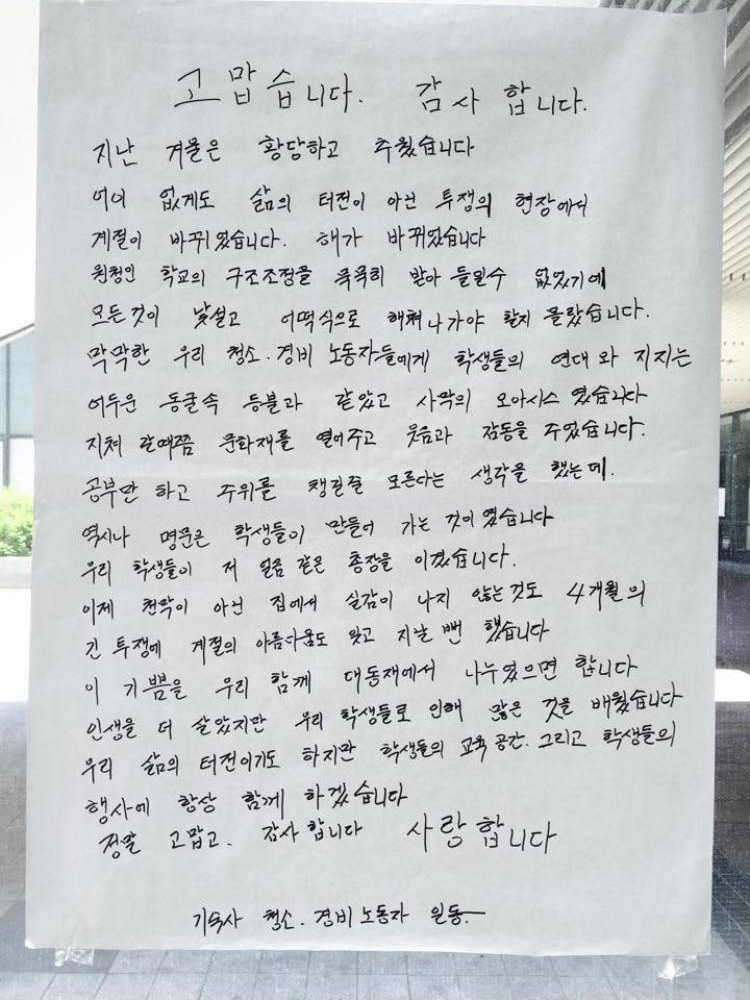 고맙습니다. 감사 합니다.
지난 겨울은 황당하고 추웠습니다
어이 없게도 삶의 터전이 아닌 투쟁의 현장에서
계절이 바뀌었습니다. 해가 바뀌었습니다
원청인 학교의 구조조정을 묵묵히 받아 들일수 없었기에
모든것이 낯설고 어떡식으로 해쳐나가야 할지 몰랐습니다.
막막한 우리 청소.경비 노동자들에게 학생들의 연대와 지지는
어두운 동굴속 등불과 같았고 사막의 오아시스 였습니다
지쳐 갈때쯤 문화재를 열어주고 웃음과 감동을 주었습니다.
공부만 하고 주위를 챙길줄 모른다는 생각을 했는데.
역시나 명문은 학생들이 만들어 가는 것이였습니다
우리 학생들이 저 얼음 같은 총장을 이겼습니다.
이제 천막이 아닌 집에서 실감이 나지 않는것도 4개월의
긴 투쟁에 계절의 아름다움도 잊고 지날 뻔 했습니다
이 기쁨을 우리 함께 대동재에서 나누었으면 합니다
인생을 더 살았지만 우리 학생들로 인해 많은 것을 배웠습니다
우리 삶의 터전이기도 하지만 학생들의 교육공간.그리고 학생들의
행사에 항상 함께 하겠습니다
정말 고맙고. 감사합니다 사랑합니다
기숙사 청소.경비노동자 일동.